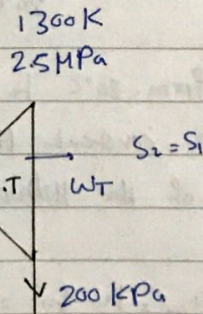 1300K
2.5MPa
S₂ = S₁
.T WT
200 KPa